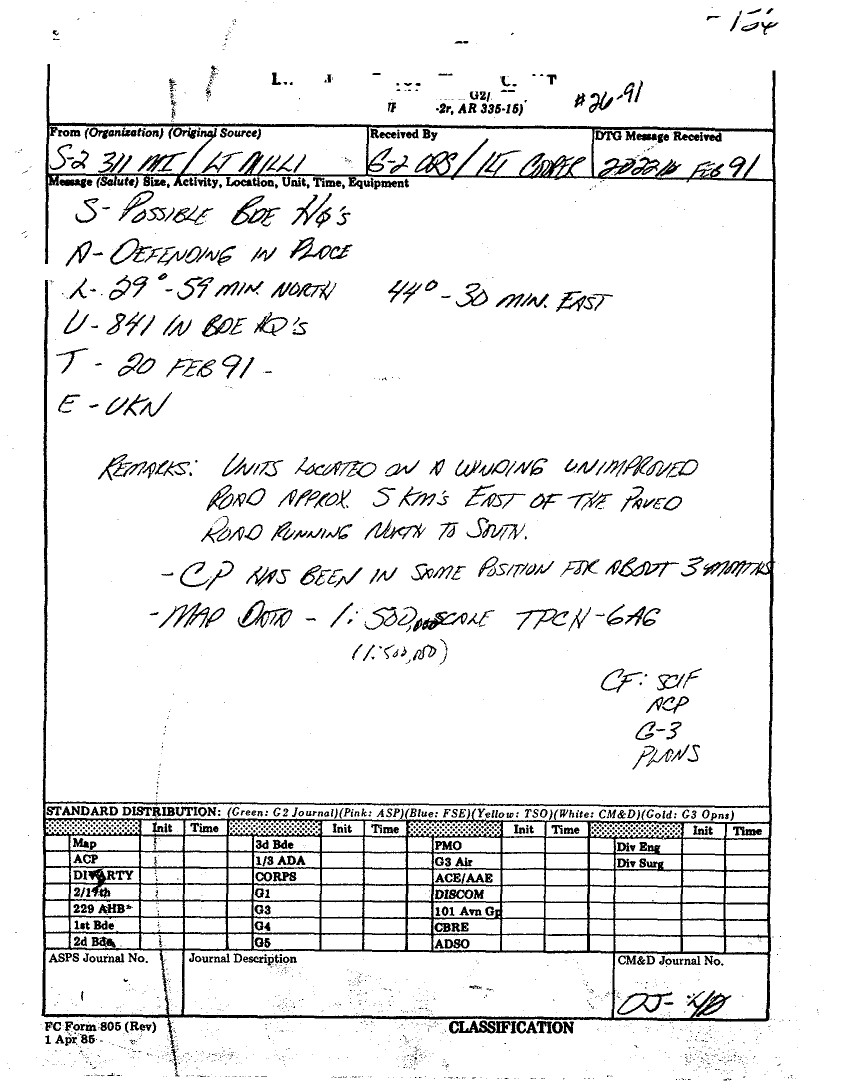 #26-91
G2/
-2r, AR 335-15)
From (Organization) (Original Source) Received By DTG Message Received
S-2 311 MI / LT MILLI G-2 OPS / LT COOPER FEB 91
Message (Salute) Size, Activity, Location, Unit, Time, Equipment
S- POSSIBLE BDE HQ'S
A- DEFENDING IN PLACE
L- 29° - 59 MIN. NORTH 44° - 30 MIN. EAST
U- 841 IN BDE HQ'S
T - 20 FEB 91 -
E - UKN
REMARKS: UNITS LOCATED ON A WINDING UNIMPROVED
ROAD APPROX. 5 KM'S EAST OF THE PAVED
ROAD RUNNING NORTH TO SOUTH.
- CP HAS BEEN IN SAME POSITION FOR ABOUT 3 MONTHS
- MAP DATA - 1:500,000 SCALE TPC H-6AG
(1:500,000)
CF: SCIF
ACP
G-3
PLANS
STANDARD DISTRIBUTION: (Green: G2 Journal)(Pink: ASP)(Blue: FSE)(Yellow: TSO)(White: CM&D)(Gold: G3 Opns)
Init Time Init Time Init Time Init Time
Map 3d Bde PMO Div Eng
ACP 1/3 ADA G3 Air Div Surg
DIVARTY CORPS ACE/AAE
2/17th G1 DISCOM
229 AHB G3 101 Avn Gp
1st Bde G4 CBRE
2d Bde G5 ADSO
ASPS Journal No. Journal Description CM&D Journal No.
FC Form 805 (Rev) CLASSIFICATION
1 Apr 85